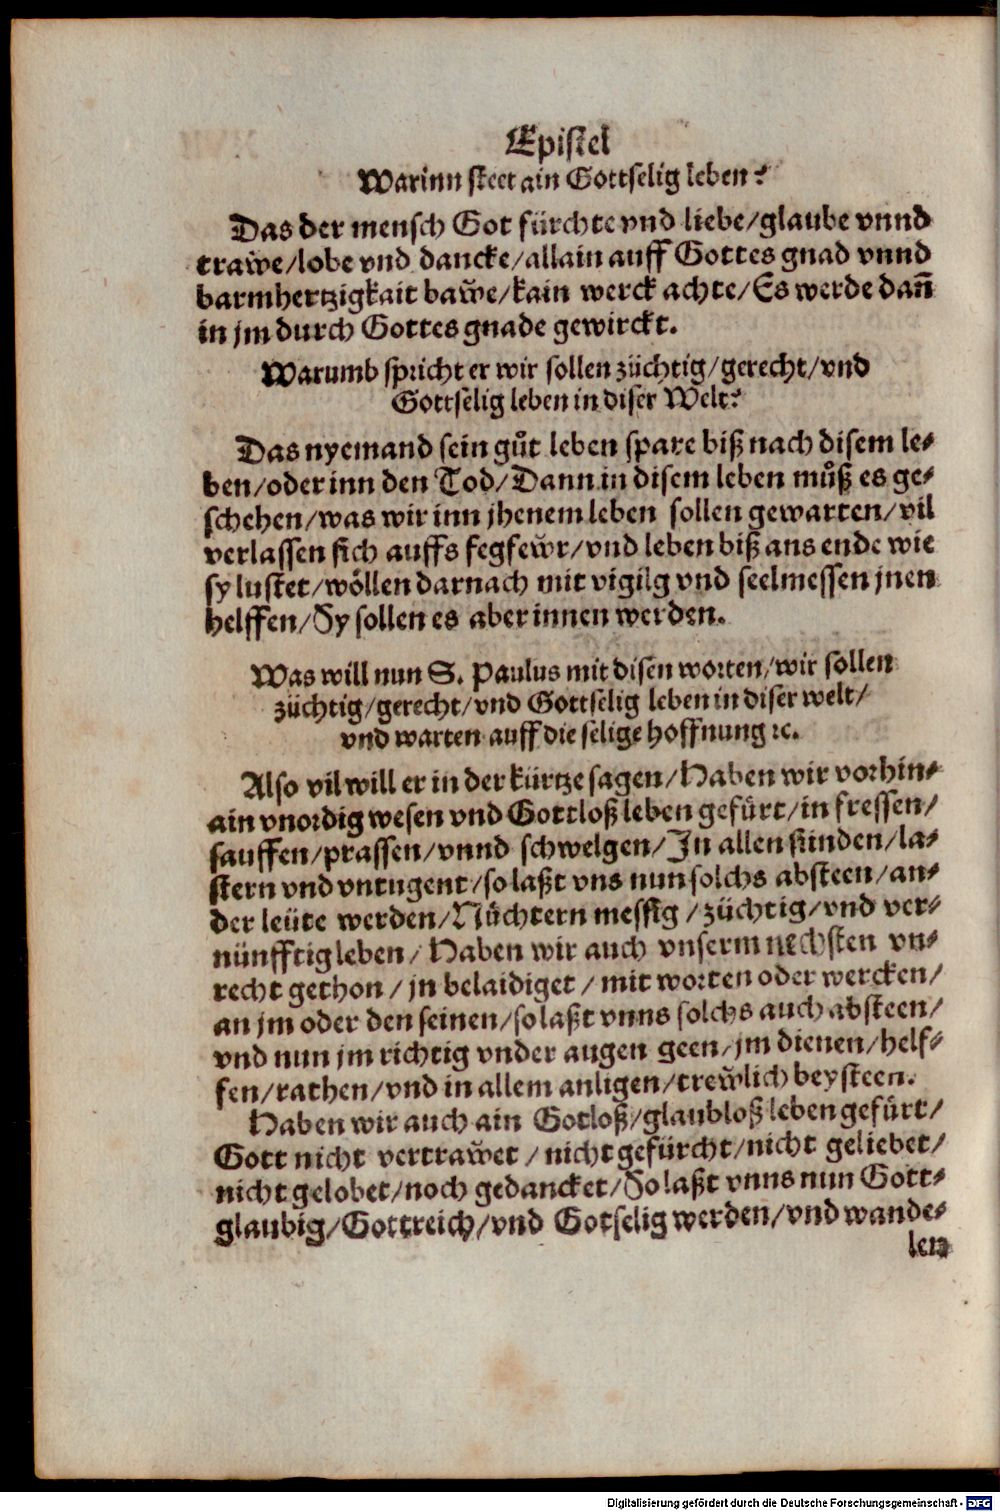 Epistel
Warinn steet ain Gottselig leben?
Das der mensch Got fürchte vnd liebe/glaube vnnd
trawͤe/lobe vnd dancke/allain auff Gottes gnad vnnd
barmhertzigkait bawͤe/kain werck achte/Es werde dañ
in jm durch Gottes gnade gewirckt.
Warumb spricht er wir sollen züchtig/gerecht/vnd
Gottselig leben in diser Welt?
Das nyemand sein guͦt leben spare biß nach disem le⸗
ben/oder inn den Tod/Dann in disem leben muͦß es ge⸗
schehen/was wir inn jhenem leben sollen gewarten/vil
verlassen sich auffs fegfewͤr/vnd leben biß ans ende wie
sy lustet/woͤllen darnach mit vigilg vnd seelmessen jnen
helffen/Sy sollen es aber innen werden.
Was will nun S. Paulus mit disen worten/wir sollen
züchtig/gerecht/vnd Gottselig leben in diser welt/
vnd warten auff die selige hoffnung ⁊c.
Also vil will er in der kürtze sagen/Haben wir vorhin⸗
ain vnordig wesen vnd Gottloß leben gefürt/in fressen/
sauffen/prassen/vnnd schwelgen/In allen sünden/la⸗
stern vnd vntugent/so laßt vns nun solchs absteen/an⸗
der leüte werden/Nuͤchtern messig/züchtig/vnd ver⸗
nünfftig leben/Haben wir auch vnserm nechsten vn⸗
recht gethon/jn belaidiget/mit worten oder wercken/
an jm oder den seinen/so laßt vnns solchs auch absteen/
vnd nun jm richtig vnder augen geen/jm dienen/helf⸗
fen/rathen/vnd in allem anligen/trewͤlich beysteen.
Haben wir auch ain Gotloß/glaubloß leben gefürt/
Gott nicht vertrawͤet/nicht gefürcht/nicht geliebet/
nicht gelobet/noch gedancket/So laßt vnns nun Gott⸗
glaubig/Gottreich/vnd Gotselig werden/vnd wande⸗
len
Digitalisierung gefördert durch die Deutsche Forschungsgemeinschaft - DFG